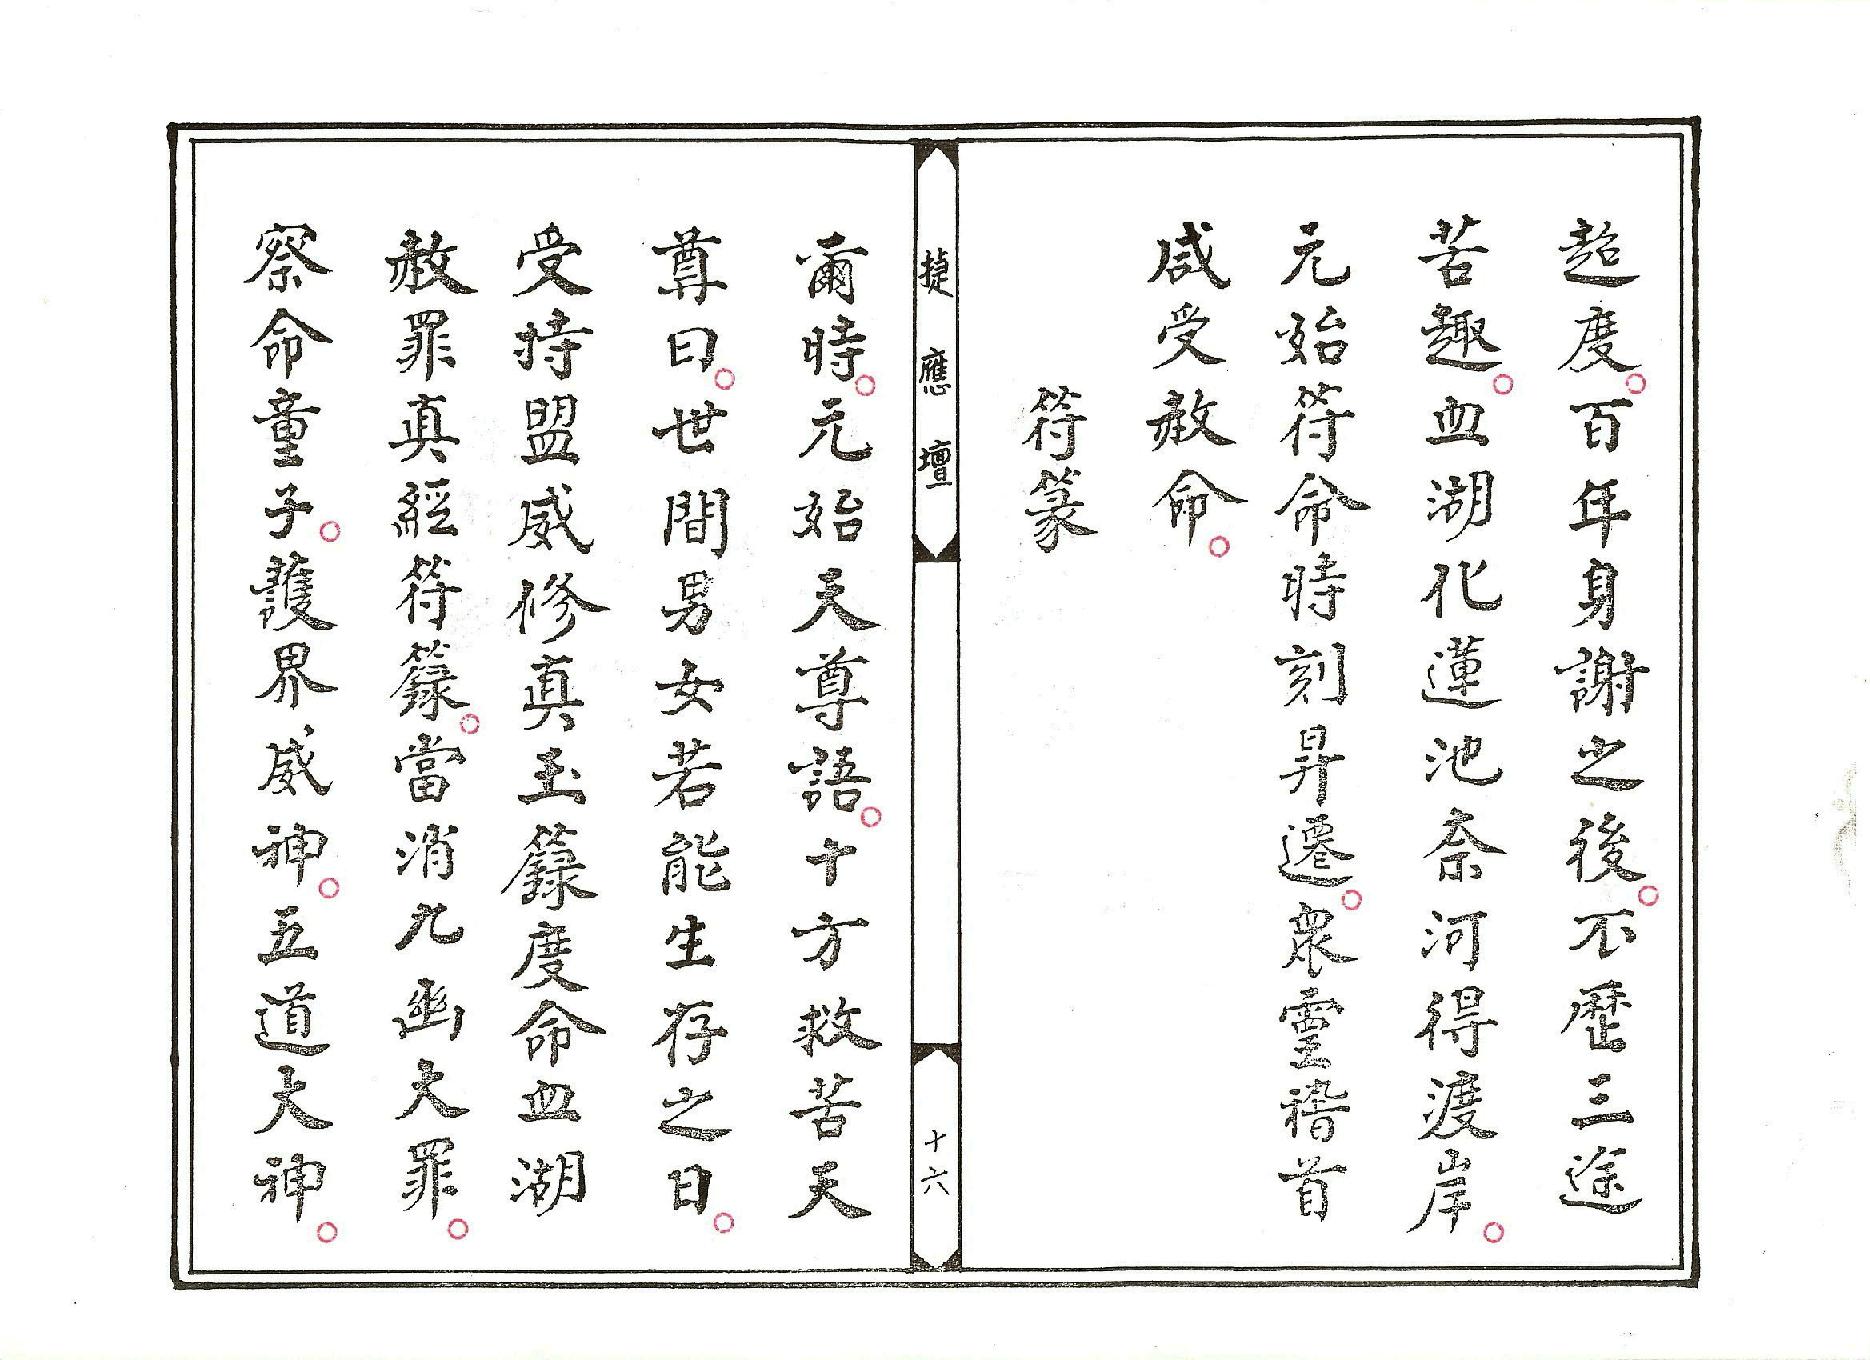 超度。百年身謝之後。不歷三途
苦趣。血湖化蓮池奈河得渡岸。
元始符命時刻昇遷。眾靈稽首
咸受赦命。
符篆
捷應壇
十六
爾時。元始天尊語。十方救苦天
尊曰。世間男女若能生存之日。
受持盟威修真玉籙度命血湖
赦罪真經符籙。當消九幽大罪。
察命童子。護界威神。五道大神。